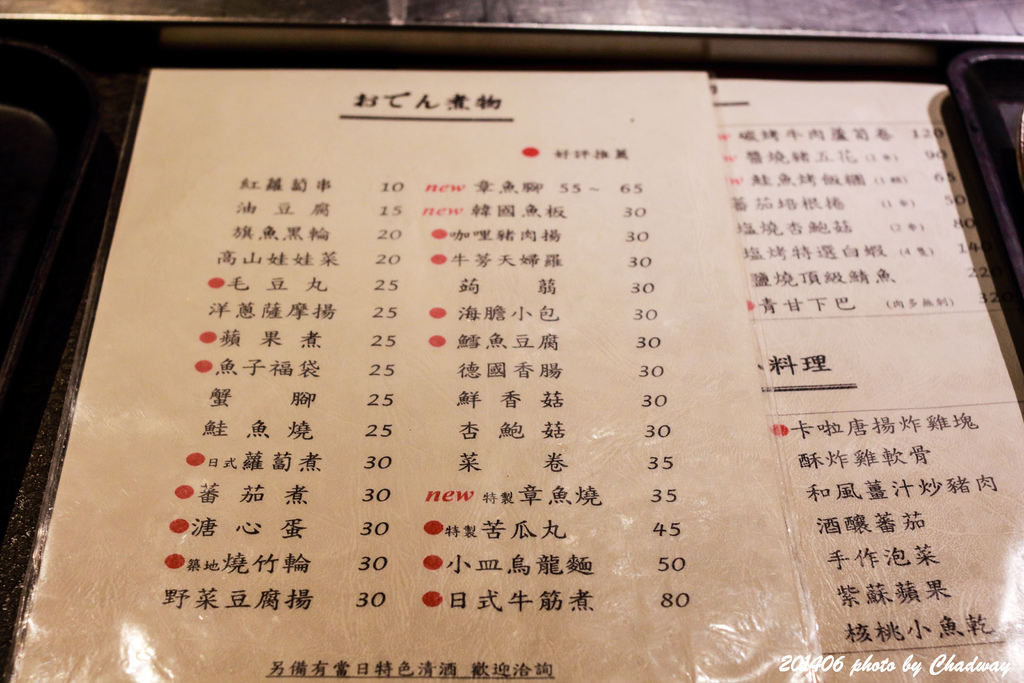 おでん煮物
● 好評推薦
紅蘿蔔串 10
油豆腐 15
旗魚黑輪 20
高山娃娃菜 20
●毛豆丸 25
洋蔥薩摩揚 25
●蘋果煮 25
●魚子福袋 25
蟹腳 25
鮭魚燒 25
●日式蘿蔔煮 30
●蕃茄煮 30
●溏心蛋 30
●築地燒竹輪 30
野菜豆腐揚 30
new 章魚腳 55~ 65
new 韓國魚板 30
●咖哩豬肉揚 30
●牛蒡天婦羅 30
蒟蒻 30
●海膽小包 30
●鱈魚豆腐 30
德國香腸 30
鮮香菇 30
杏鮑菇 30
菜卷 35
new 特製章魚燒 35
●特製苦瓜丸 45
●小皿烏龍麵 50
●日式牛筋煮 80
另備有當日特色清酒 歡迎洽詢
碳烤牛肉蘆筍卷 120
醬燒豬五花(2串) 90
鮭魚烤飯糰(1顆) 65
蕃茄培根捲 (1串) 50
塩燒杏鮑菇 (2串) 80
塩烤特選白蝦 (4隻) 140
鹽燒頂級鯖魚 220
●青甘下巴 (肉多無刺) 320
料理
●卡啦唐揚炸雞塊
酥炸雞軟骨
和風薑汁炒豬肉
酒釀蕃茄
手作泡菜
紫蘇蘋果
核桃小魚乾
201406 photo by Chadway